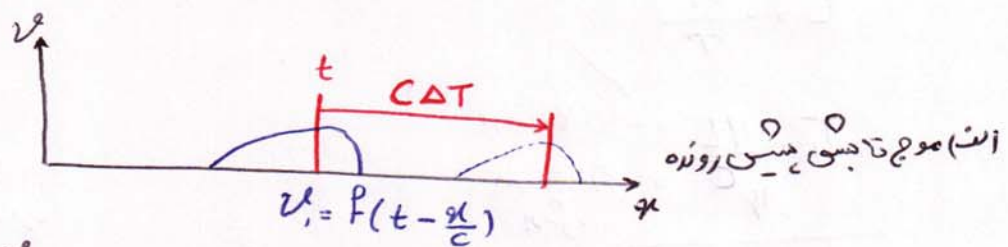 v
t
CΔT
الف) موج تابشی پیش رونده
x
v₁ = f(t - x/c)